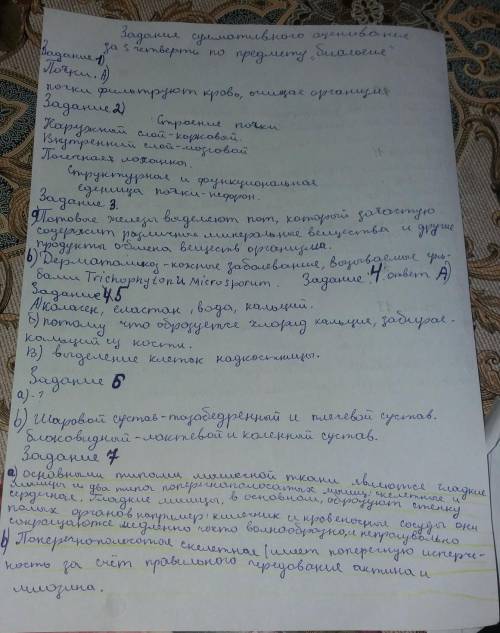 Задания суммативного оценивания
за 3 четверти по предмету "биология"
Задание 1)
Почки. А)
почки фильтруют кровь, очищае организм
Задание 2)
Строение почки
Наружный слой-корковой.
Внутренний слой-мозговой
Полечная лоханка.
Структурная и функциональная
еденица почки-нефрон.
Задание 3.
а) Потовые железы выделяют пот, который зачастую
содержит различные минеральные вещества и другие
продукты обмена веществ организма.
b) Дерматомикоз-кожные заболевание, вызываемые гри-
бами Trichophyton и Microsporum. Задание 4 ответ А)
Задание 5
А) колаген, эластан, вода, кальций.
Б) потому что образуется хлорид кальция, забирае-
кальций из кости.
В) выделение клеток надкостницы.
Задание 6
а) - ?
b) Шаровой сустав-тазобедренный и плечевой сустав.
Блоковидный-локтевой и коленный сустав.
Задание 7
а) основными типами мышечной ткани являются гладкие
мышцы и два типа поперечнополосатых мышц: скелетные и
сердечная. Гладкие мышцы, в основном, образуют стенку
полых органов например: кишечник и кровеносные сосуды они
сокращаются медленно часто волнообразно и непроизвольно
b) Поперечнополосатое скелетная (имеет поперечную исчерче-
ность за счёт правильного чередование актина и
миозина.